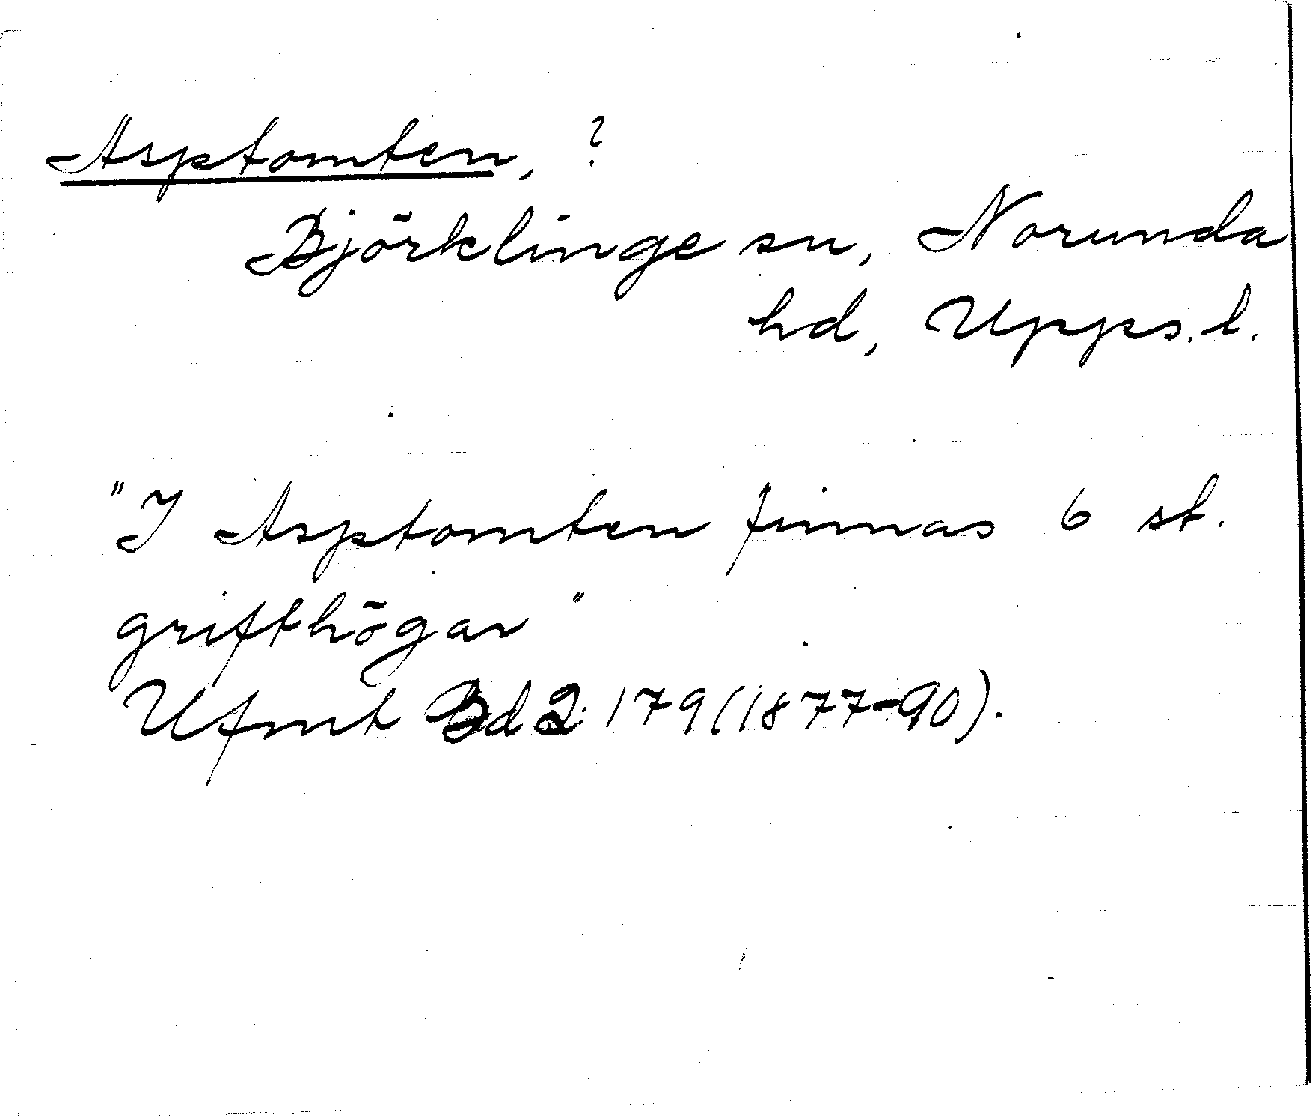 Asptomten, ?
Björklinge sn, Norunda
hd, Upps. l.
"I Asptomten finnas 6 st.
grifthögar"
Ufmt Bd 2: 179 (1877-90).